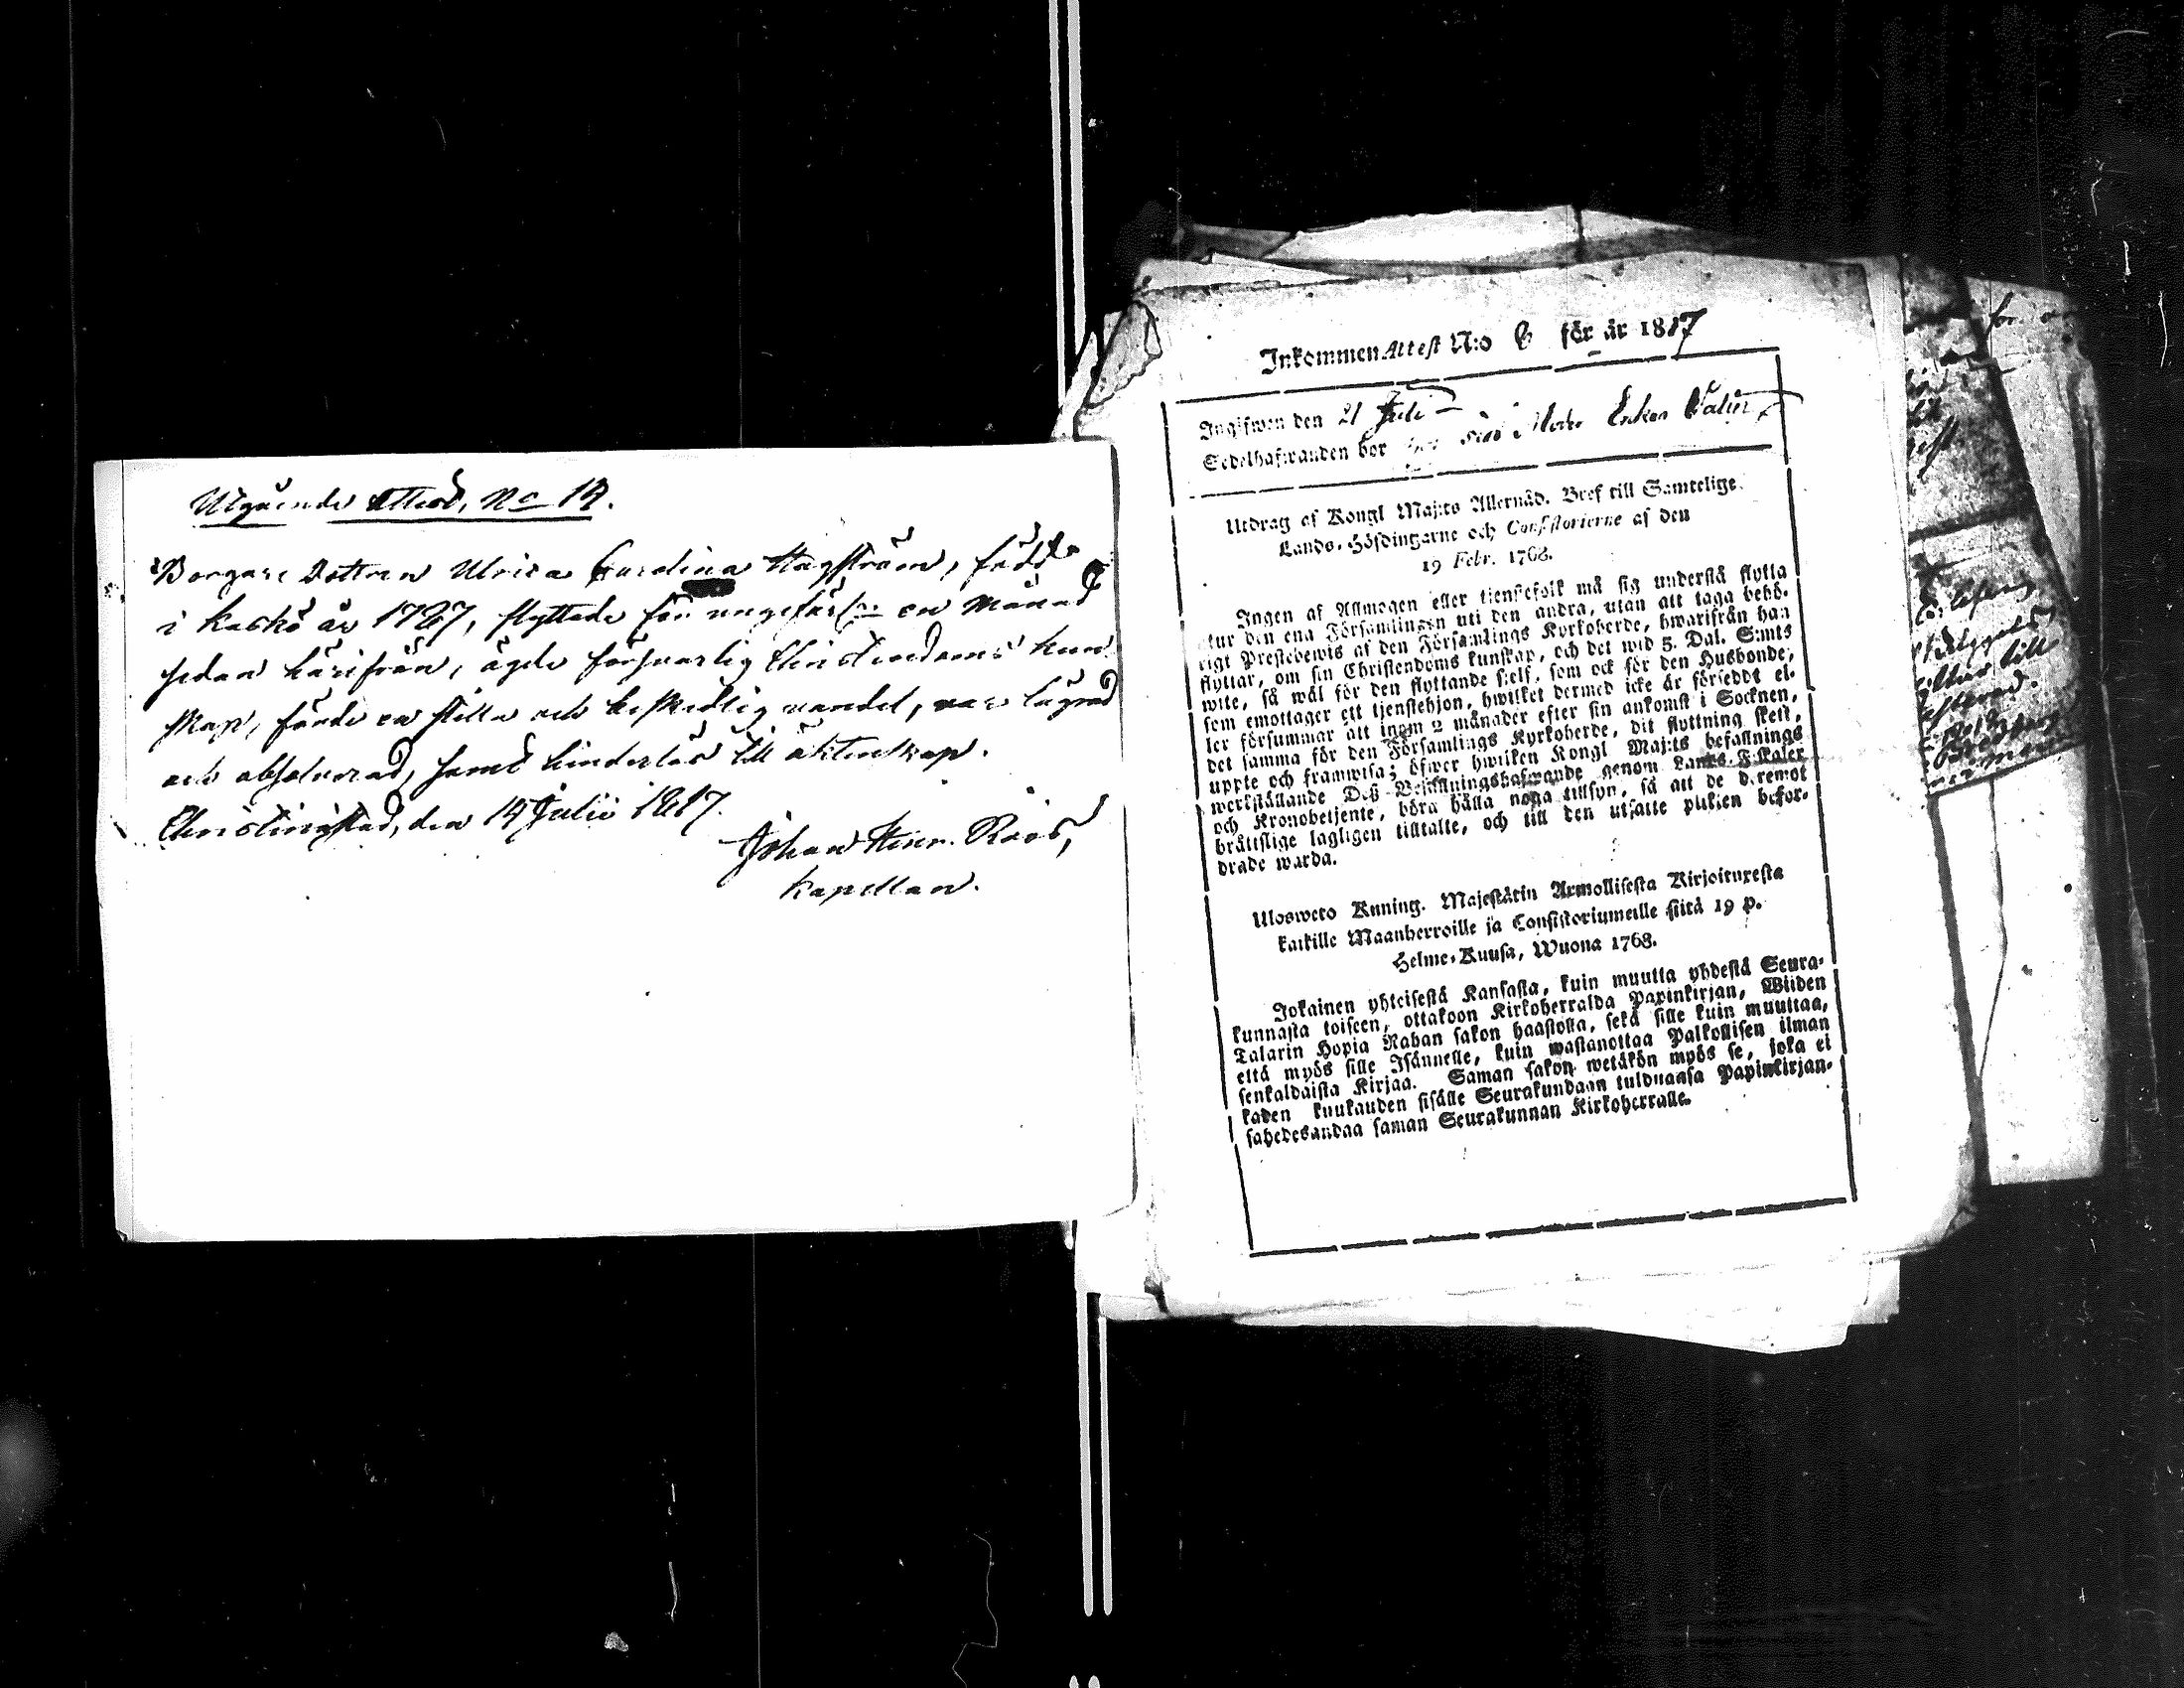 Utgående attest, No 14.
Borgare Dottren Ulrica Carolina Hagström, född
i Kaskö år 1787, flyttade för ungefär en månad
sedan härifrån, ägde försvarlig Christendoms kun
skap, förde en stilla och beskedlig vandel, var lägrad
och absolverad, samt hinderlös till äktenskap.
Christinæstad, den 14 Julii 1817.
Johan Henr. Roos,
Kapellan.
Inkommen Attest N:o 6 för år 1817
Ingifwen den 21 Juli
Sedelhafwanden bor hos sin Moder Enkan
Utdrag af Kongl Maj:ts Allernåd. Bref till Samtelige
Lands-Höfdingarne och Consistorierne af den
19 Febr. 1768.
Ingen af Allmogen eller tienstefolk må sig understå flytta
utur den ena Församlingen uti den andra, utan att taga behö-
rigt Prestebewis af den Församlings Kyrkoherde, hwarifrån han
flyttar, om sin Christendoms kunskap, och det wid 5. Dal. S:mts
wite, så wäl för den flyttande sielf, som ock för den Husbonde,
som emottager ett tjenstehjon, hwilket dermed icke är försedt el-
ler försummar att inom 2 månader efter sin ankomst i Socknen,
det samma för den Församlings Kyrkoherde, dit flyttning skett,
uppte och framwisa; öfwer hwilken Kongl Maj:ts befallnings
werkställande Deß Befallningshafwande genom Lands-Fiskaler
och Kronobetjente, böra hålla noga tillsyn, så att de deremot
brättslige lagligen tilltalte, och till den utsatte plikten befor-
drade warda.
Ulosweto Kuning. Majestätin Armollisesta Kirjoituxesta
kaikille Maanherroille ja Consistoriumeille siitä 19 p.
Helme-Kuusa, Wuona 1768.
Jokainen yhteisestä Kansasta, kuin muutta yhdestä Seura-
kunnasta toiseen, ottakoon Kirkoherralda Papinkirjan, Wiiden
Talarin Hopia Rahan sakon haastosta, sekä sille kuin muuttaa,
että myös sille Isännelle, kuin wastanottaa Palkollisen ilman
senkaldaista Kirjaa. Saman sakon wetäkön myös se, joka ei
kahden kuukauden sisälle Seurakundaan tulduansa Papinkirjan-
sahedesandaa saman Seurakunnan Kirkoherralle.